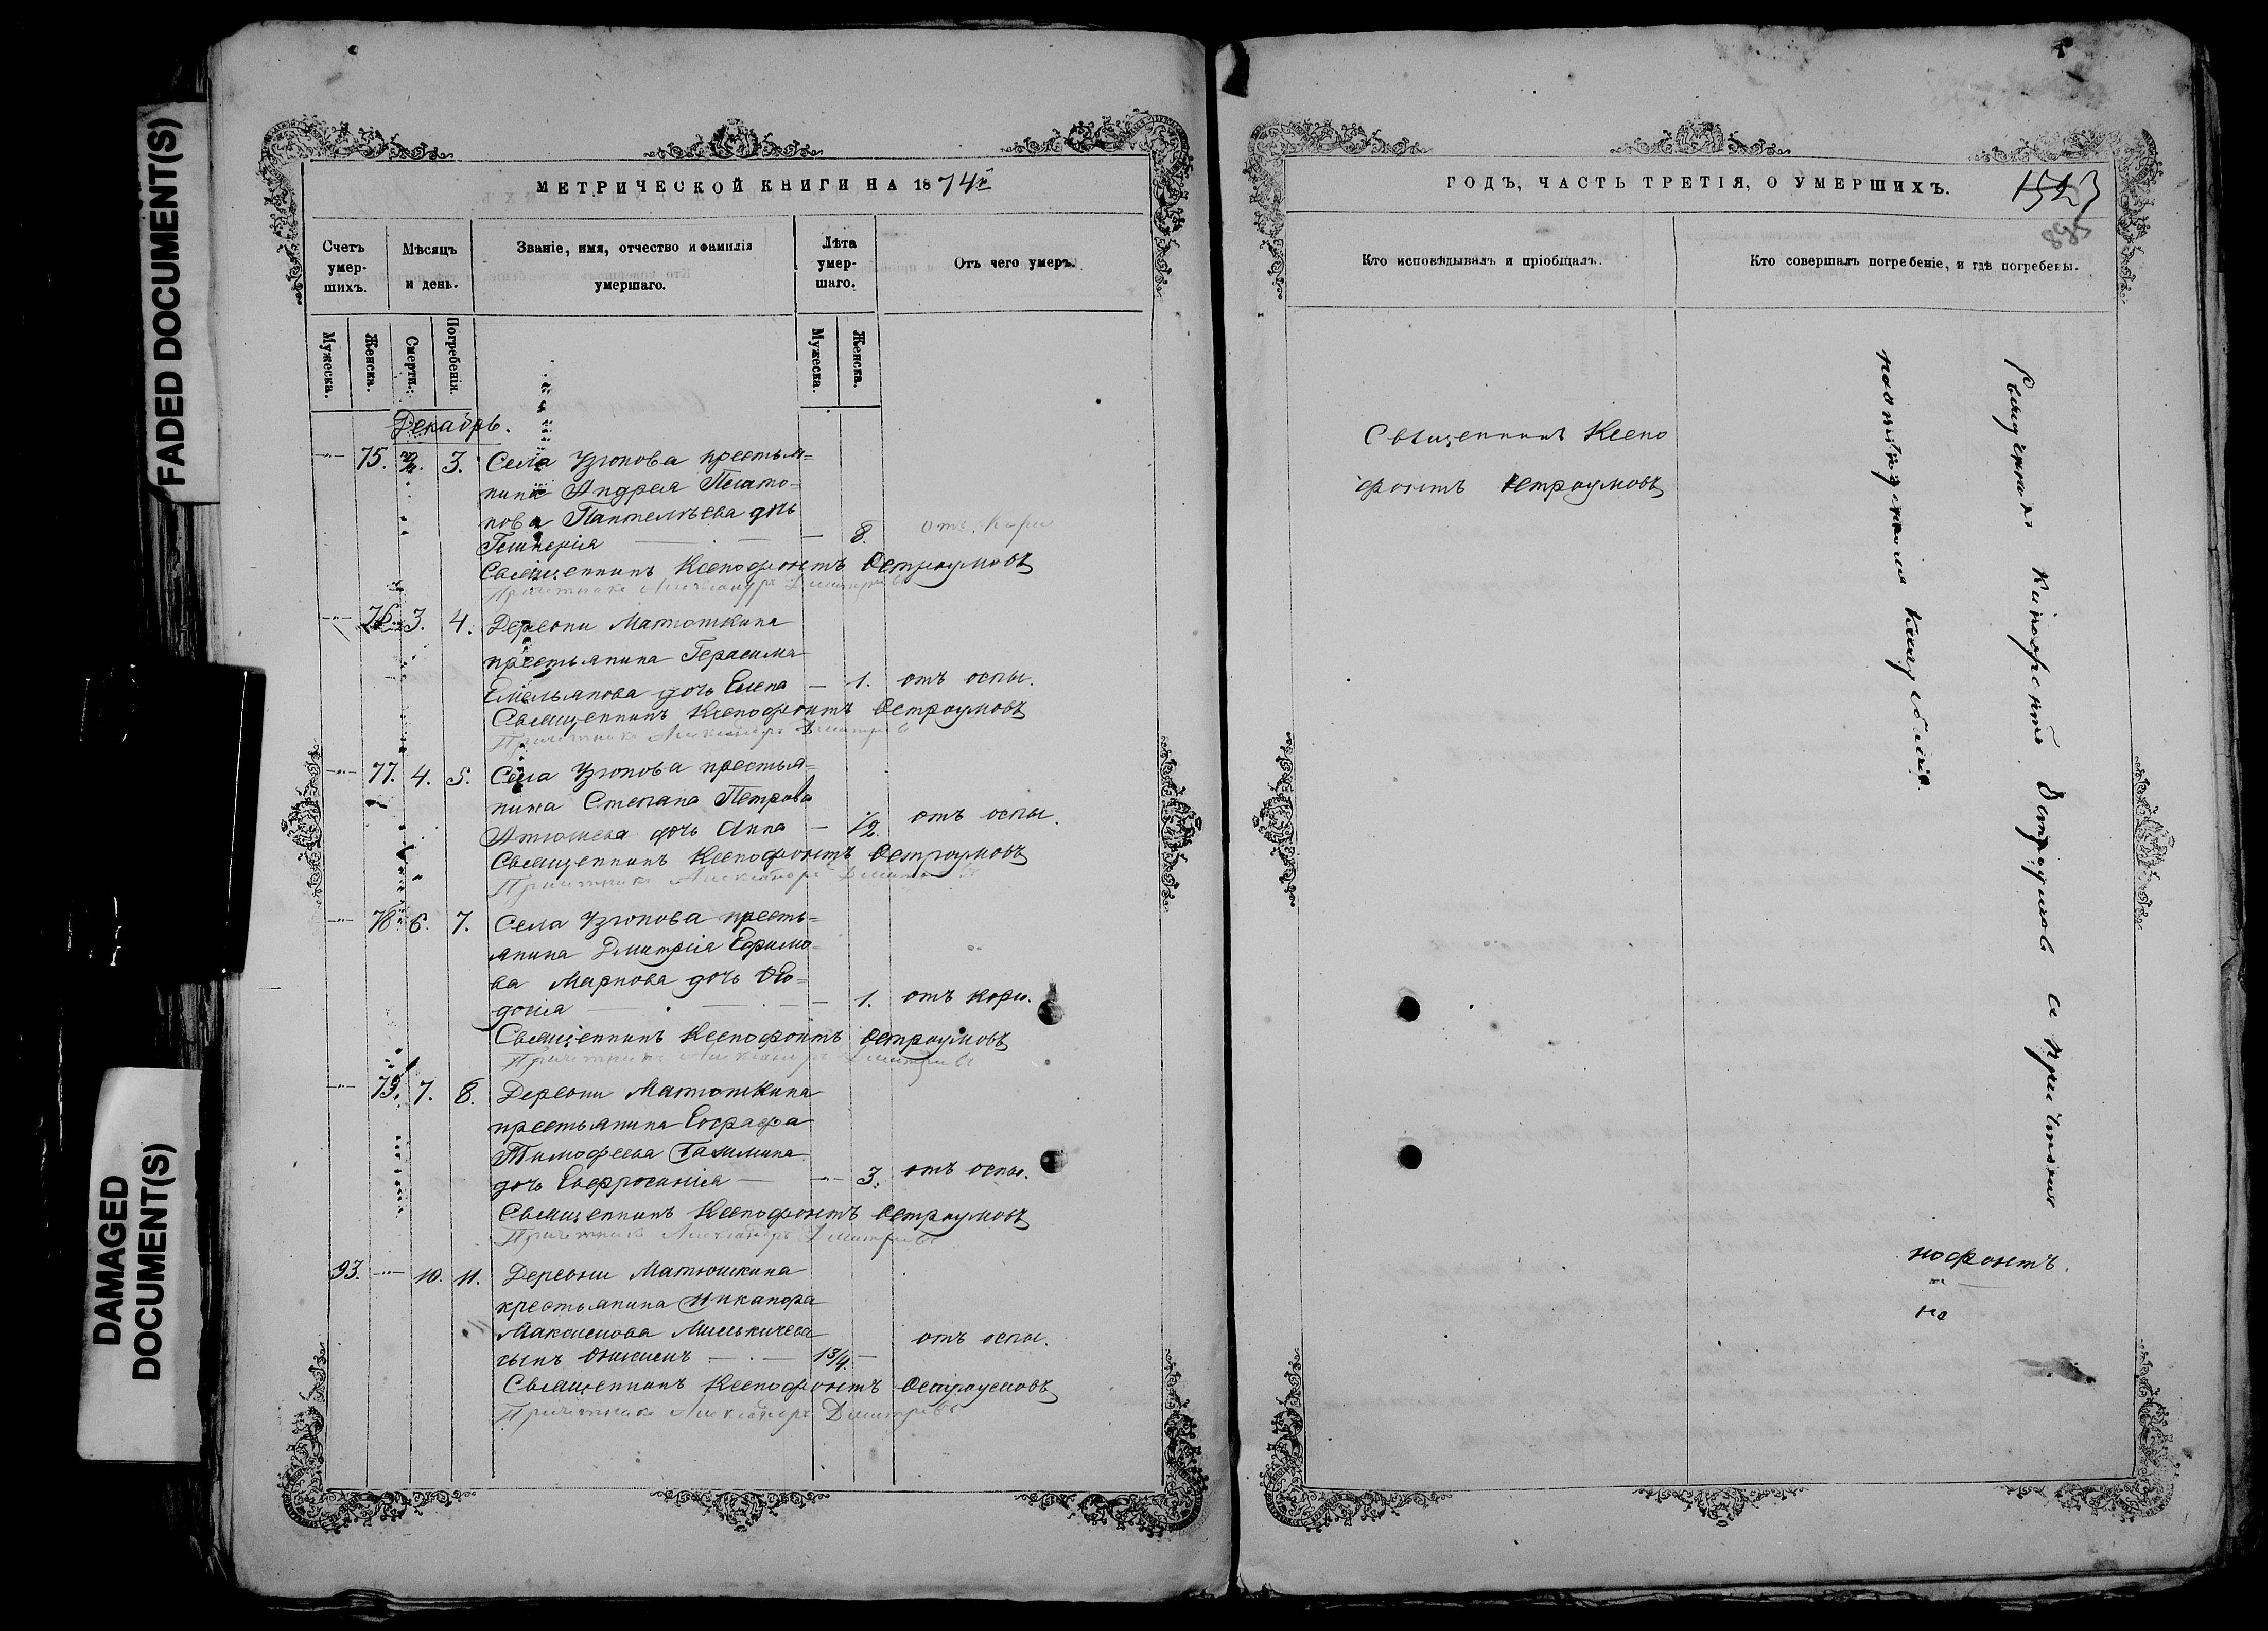 FADED DOCUMENT(S)
DAMAGED
DOCUMENT(S)
МЕТРИЧЕСКОЙ КНИГИ НА 1874й
Счетъ умер- шихъ.
Мѣсяцъ и день.
Званіе, имя, отчество и фамилія умершаго.
Лѣта умер- шаго.
Отъ чего умеръ.
Мужеска.
Женска.
Смерти.
Погребенія.
Мужеска.
Женска.
Декабрь.
75. 2. 3. Села Узюкова крестья=
нина Андрея Плато=
нова Пантелѣева дочь
Гликерія 8. отъ кори
Священникъ Ксенофонтъ Остроумовъ
Причетникъ Александръ Димитріевъ
76. 3. 4. Деревни Матюшкина
крестьянина Герасима
Емельянова дочь Елена 1. отъ оспы.
Священникъ Ксенофонтъ Остроумовъ
Причетникъ Александръ Димитріевъ
77. 4. 5. Села Узюкова крестья=
нина Степана Петрова
дочь Анна 1/2. отъ оспы.
Священникъ Ксенофонтъ Остроумовъ
Причетникъ Александръ Димитріевъ
78. 6. 7. Села Узюкова кресть=
янина Димитрія Ефимо=
ва Маркова дочь Ѳео=
досія 1. отъ кори.
Священникъ Ксенофонтъ Остроумовъ
Причетникъ Александръ Димитріевъ
79. 7. 8. Деревни Матюшкина
крестьянина Евграфа
Тимофеева
дочь Евфросинія 3. отъ оспы.
Священникъ Ксенофонтъ Остроумовъ
Причетникъ Александръ Димитріевъ
93. 10. 11. Деревни Матюшкина
крестьянина Никанора
Максимова
сынъ Онисимъ 1 3/4. отъ оспы.
Священникъ Ксенофонтъ Остроумовъ
Причетникъ Александръ Димитріевъ
ГОДЪ, ЧАСТЬ ТРЕТІЯ, О УМЕРШИХЪ.
1523
Кто исповѣдывалъ и пріобщалъ.
Кто совершалъ погребеніе, и гдѣ погребены.
Священникъ Ксено
фонтъ Остроумовъ
Священникъ Ксенофонтъ Остроумовъ съ причтомъ
кладбищѣ.
нофонтъ.
на